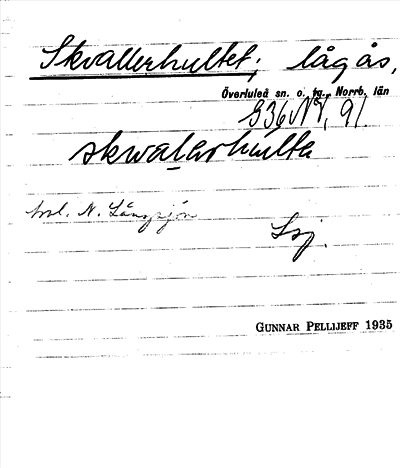 Skvallerhultet; lågås,
Överluleå sn. o. tg., Norrb. län
G36NV, 91.
skwalarhulta
N. Långsjön
Lsj.
GUNNAR PELLIJEFF 1935